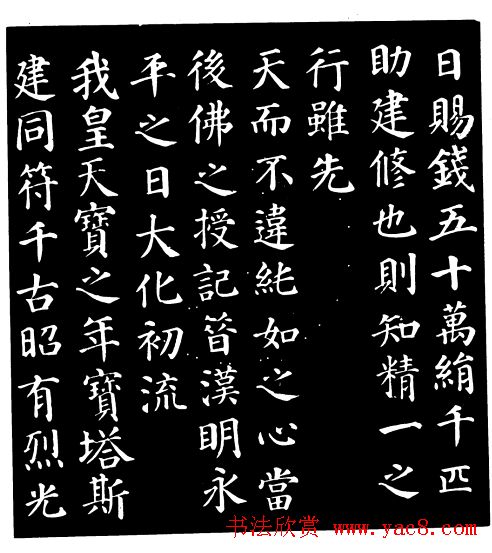 日賜錢五十萬絹千匹
助建修也則知精一之
行雖先
天而不違純如之心當
後佛之授記昔漢明永
平之日大化初流
我皇天寶之年寶塔斯
建同符千古昭有烈光
书法欣赏 www.yac8.com